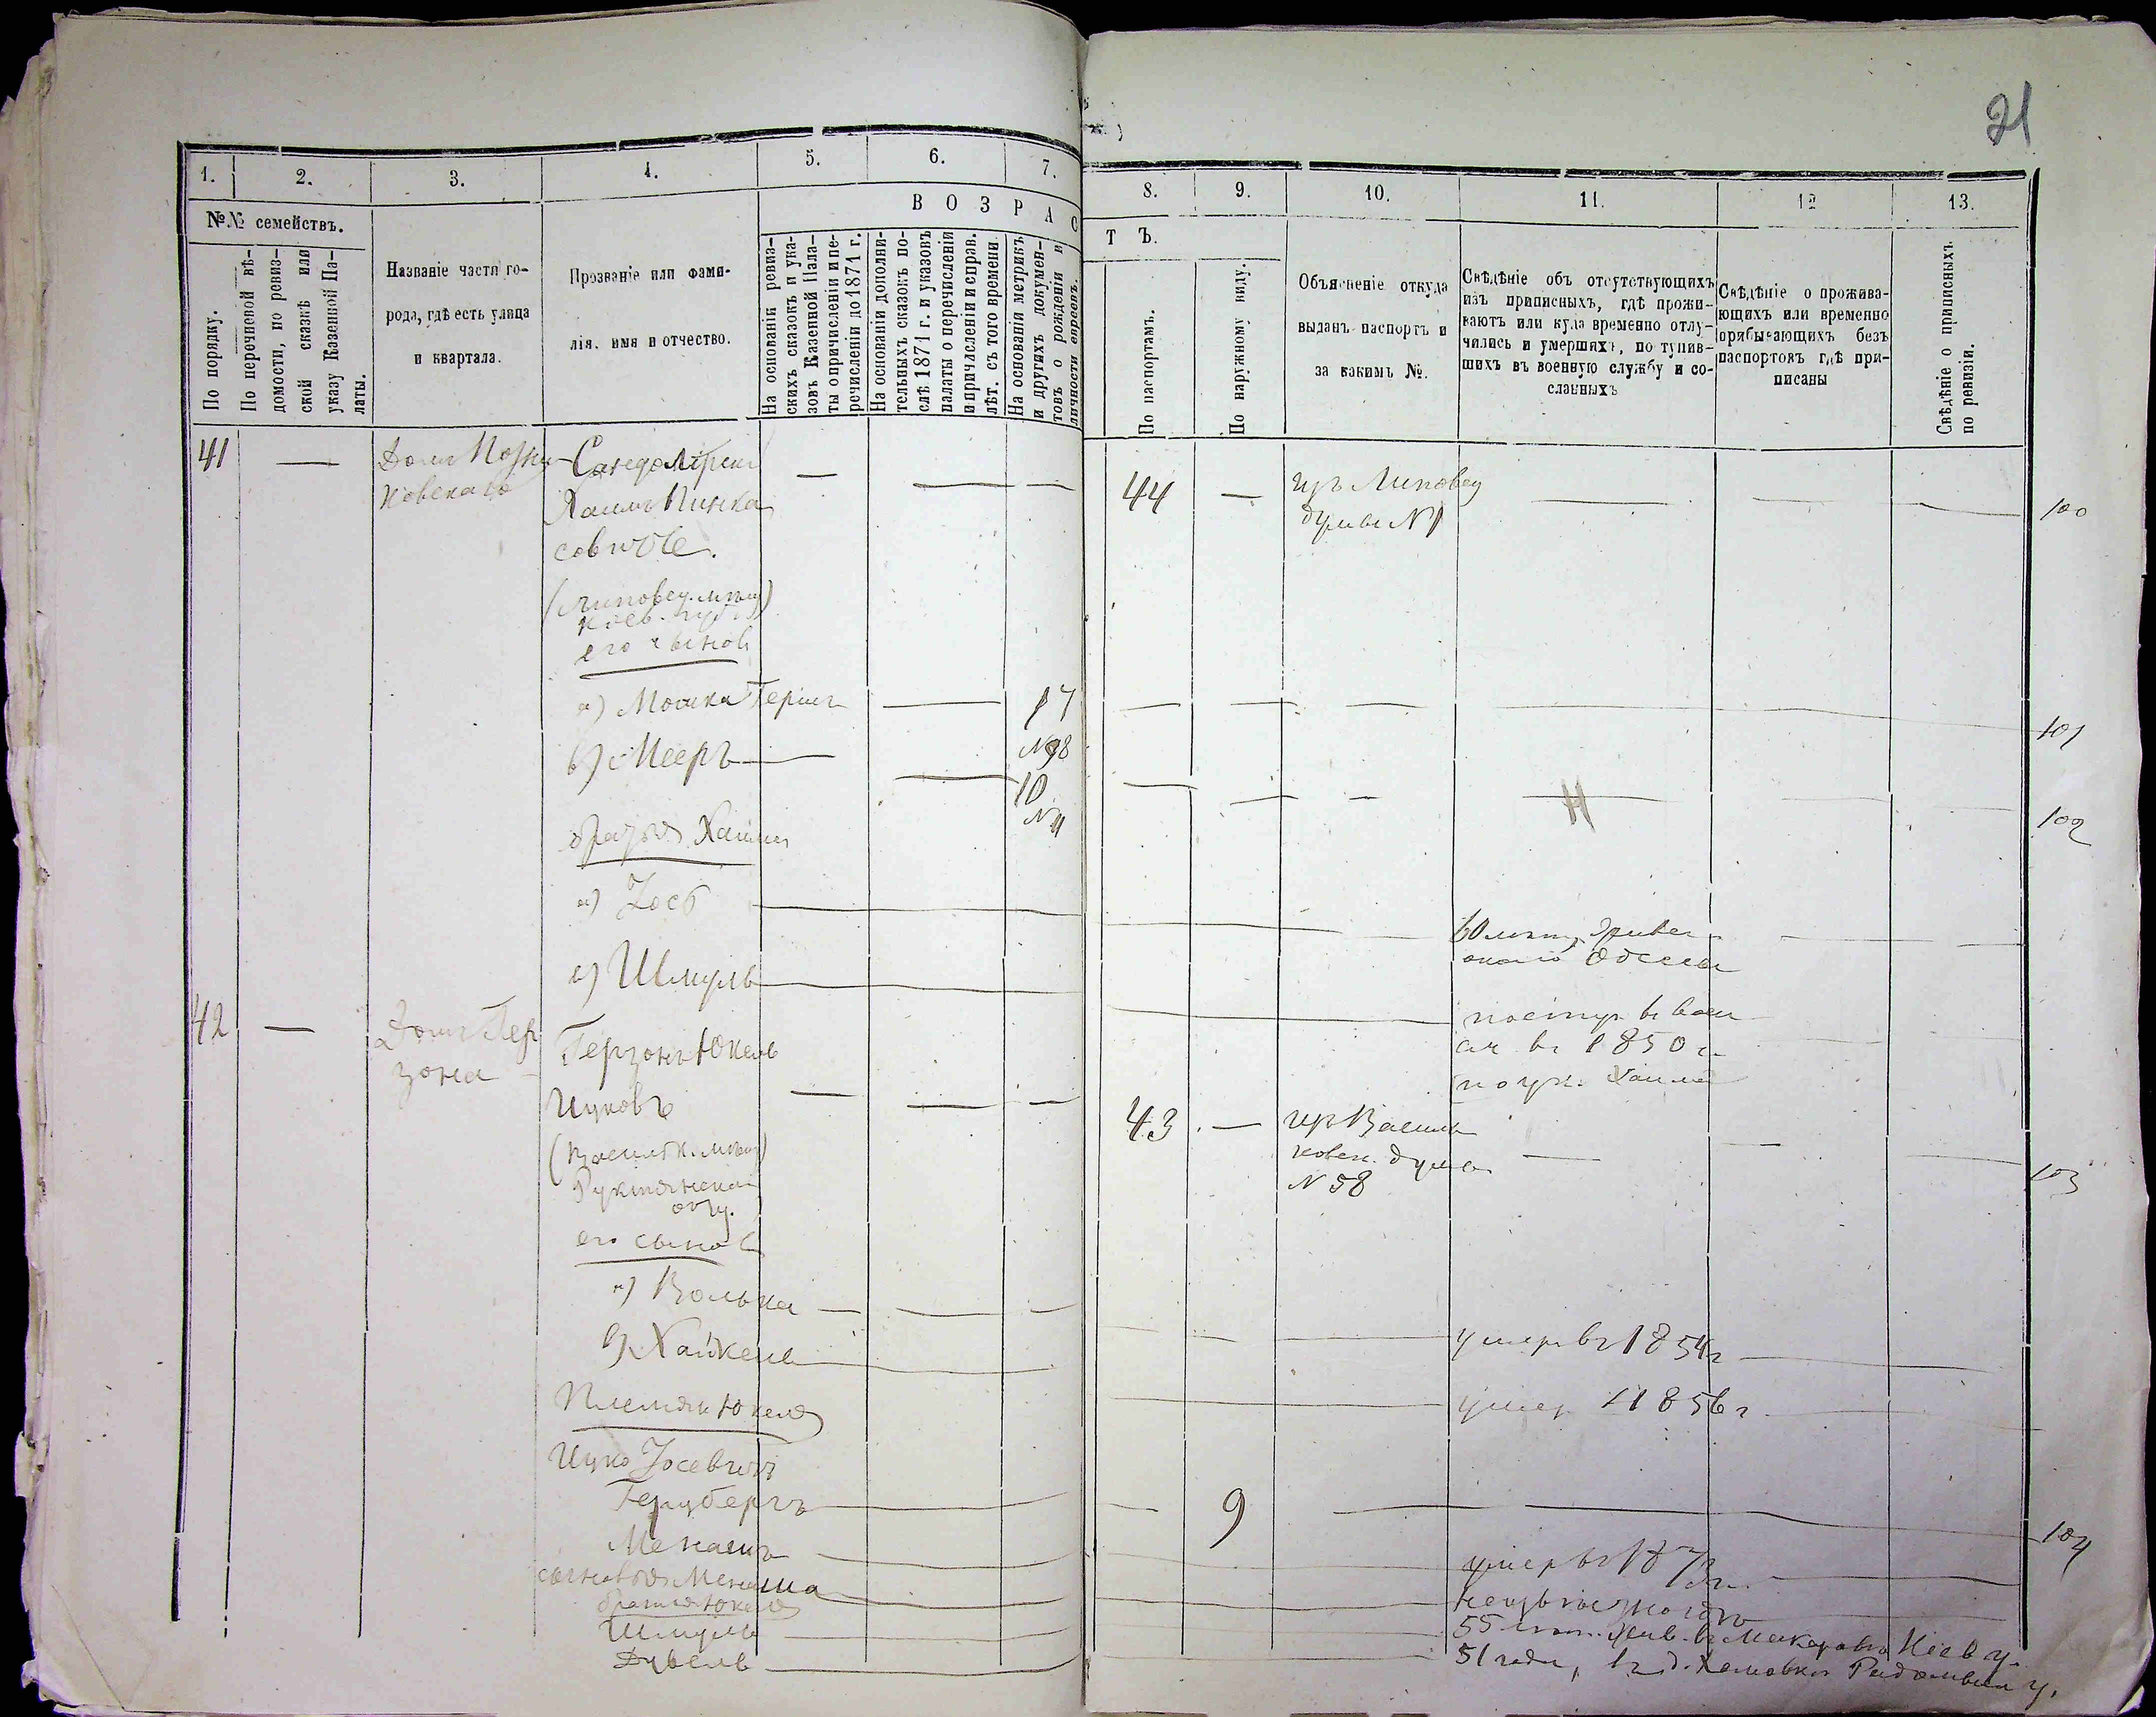 21
1.
2.
3.
4.
5.
6.
7.
8.
9.
10.
11.
12
13.
№№ семействъ.
По порядку.
По перечневой вѣ-
домости, по ревиз-
ской сказкѣ или
указу Казенной Па-
латы.
Названіе части го-
рода, гдѣ есть улица
и квартала.
Прозваніе или фами-
лія, имя и отчество.
ВОЗРАС
ТЪ.
На основаніи ревиз-
скихъ сказокъ и ука-
зовъ Казенной Пала-
ты о причисленіи и пе-
речисленіи до 1871 г.
На основаніи дополни-
тельныхъ сказокъ по-
слѣ 1871 г. и указовъ
палаты о перечисленіи
и причисленіи и справ.
лѣт. съ того времени.
На основаніи метрикъ
и другихъ докумен-
товъ о рожденіи и
личности евреевъ.
По паспортамъ.
По наружному виду.
Объясненіе откуда
выданъ паспортъ и
за какимъ №.
Свѣдѣніе объ отсутствующихъ
изъ приписныхъ, гдѣ прожи-
ваютъ или куда временно отлу-
чились и умершихъ, поступив-
шихъ въ военную службу и со-
сланныхъ
Свѣдѣніе о прожива-
ющихъ или временно
прибывающихъ безъ
паспортовъ гдѣ при-
писаны
Свѣдѣніе о приписныхъ
по ревизіи.
41 — Домъ — — — 44 — изъ Липовец — — — 100
Хаимъ Пинка
совичъ.
думы № 1
(Липовец. мѣщ)
Кіев. губ.
его сыновья
а) Мошка Гершъ — 17 — — — — 101
№ 98
в) Мееръ — — 10 — — — — 102
№ 11
братья Хаима
а) Іось —
около Одессы
в) Шмуль — поступ. въ воен
въ 1850 г.
Хаима
42 — Домъ Гер
зона
Герзонъ Юкель
Ицковъ — — — 43 — изъ Василь
ковск. думы
№ 58 — — — 103
(Васильк. мѣщ)
его сыновья
а) Волька — — — умеръ въ 1854 г
в) Хайкель — умер. 1856 г.
Племян. Юкеля
Ицко Іосевичъ
Герцбергъ — — 9 — — 104
Менашъ — умеръ въ
сыновья Менаша
братья Юкеля
Шмуль — 55 лѣт. жив. въ Макаровѣ Кіев у.
Дувель — 51 года, въ д. Радомысл у.